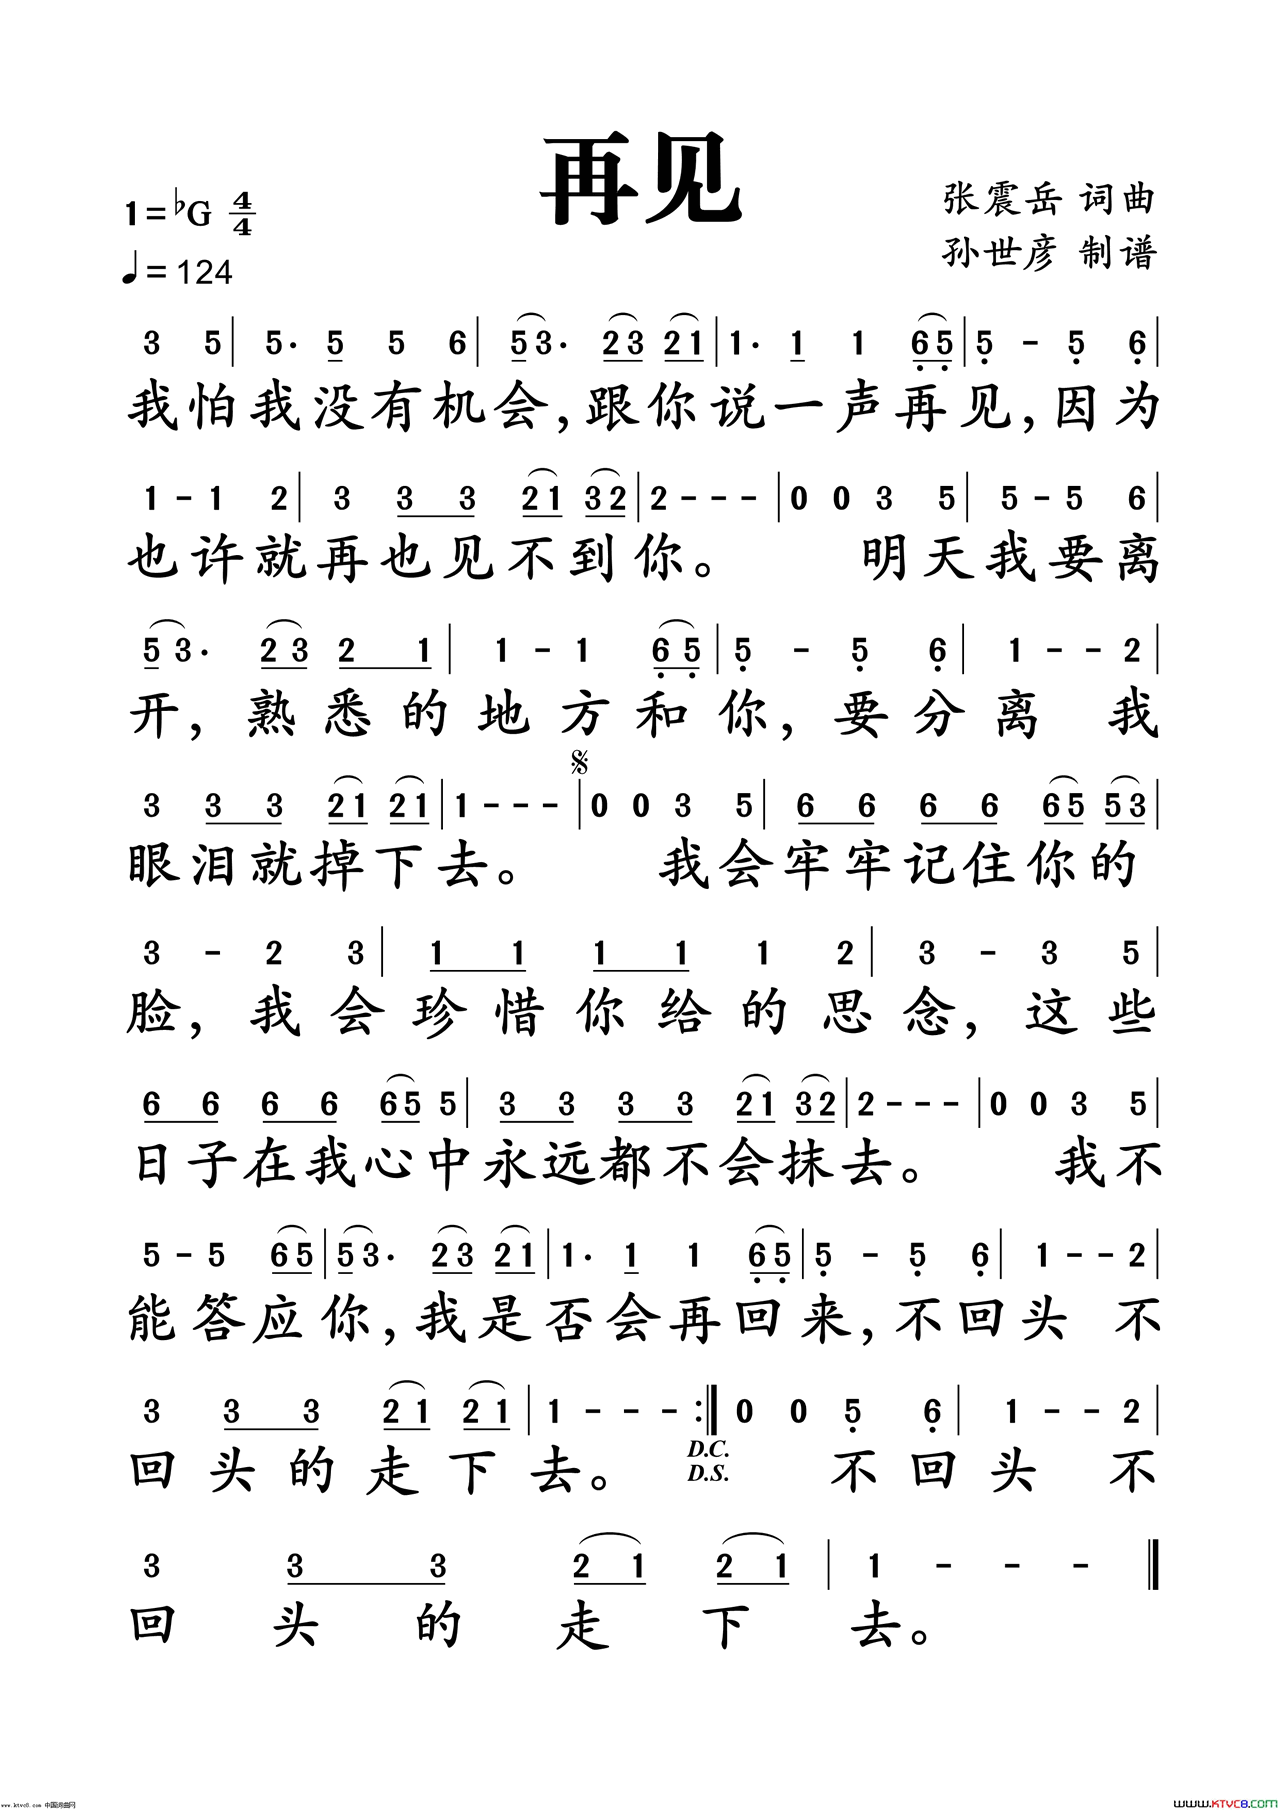 再见
1=♭G 4/4
♩=124
张震岳 词曲
孙世彦 制谱
3 5 | 5. 5 5 6 | 5 3. 2 3 2 1 | 1. 1 1 6 5 | 5 - 5 6 |
我怕我没有机会,跟你说一声再见,因为
1 - 1 2 | 3 3 3 2 1 3 2 | 2 - - - | 0 0 3 5 | 5 - 5 6 |
也许就再也见不到你。 明天我要离
5 3. 2 3 2 1 | 1 - 1 6 5 | 5 - 5 6 | 1 - - 2 |
开,熟悉的地方和你,要分离 我
3 3 3 2 1 2 1 | 1 - - - | 0 0 3 5 | 6 6 6 6 6 5 5 3 |
眼泪就掉下去。 我会牢牢记住你的
3 - 2 3 | 1 1 1 1 1 2 | 3 - 3 5 |
脸,我会珍惜你给的思念,这些
6 6 6 6 6 5 5 | 3 3 3 3 2 1 3 2 | 2 - - - | 0 0 3 5 |
日子在我心中永远都不会抹去。 我不
5 - 5 6 5 | 5 3. 2 3 2 1 | 1. 1 1 6 5 | 5 - 5 6 | 1 - - 2 |
能答应你,我是否会再回来,不回头 不
3 3 3 2 1 2 1 | 1 - - - :‖ 0 0 5 6 | 1 - - 2 |
D.C.
D.S.
回头的走下去。 不回头 不
3 3 3 2 1 2 1 | 1 - - - ‖
回头的走下去。
www.ktvc8.com 中国词曲网
WWW.KTVC8.COM